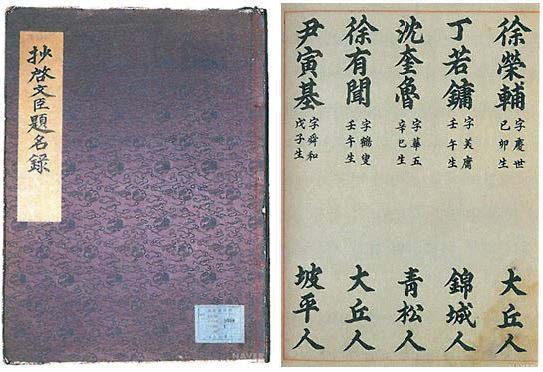 抄啓文臣題名錄
徐榮輔 字慶世 己卯生 大丘人
丁若鏞 字美庸 壬午生 錦城人
沈奎魯 字華五 辛巳生 青松人
徐有聞 字鶴叟 壬午生 大丘人
尹寅基 字舜和 戊子生 坡平人
NAVER
NAVER